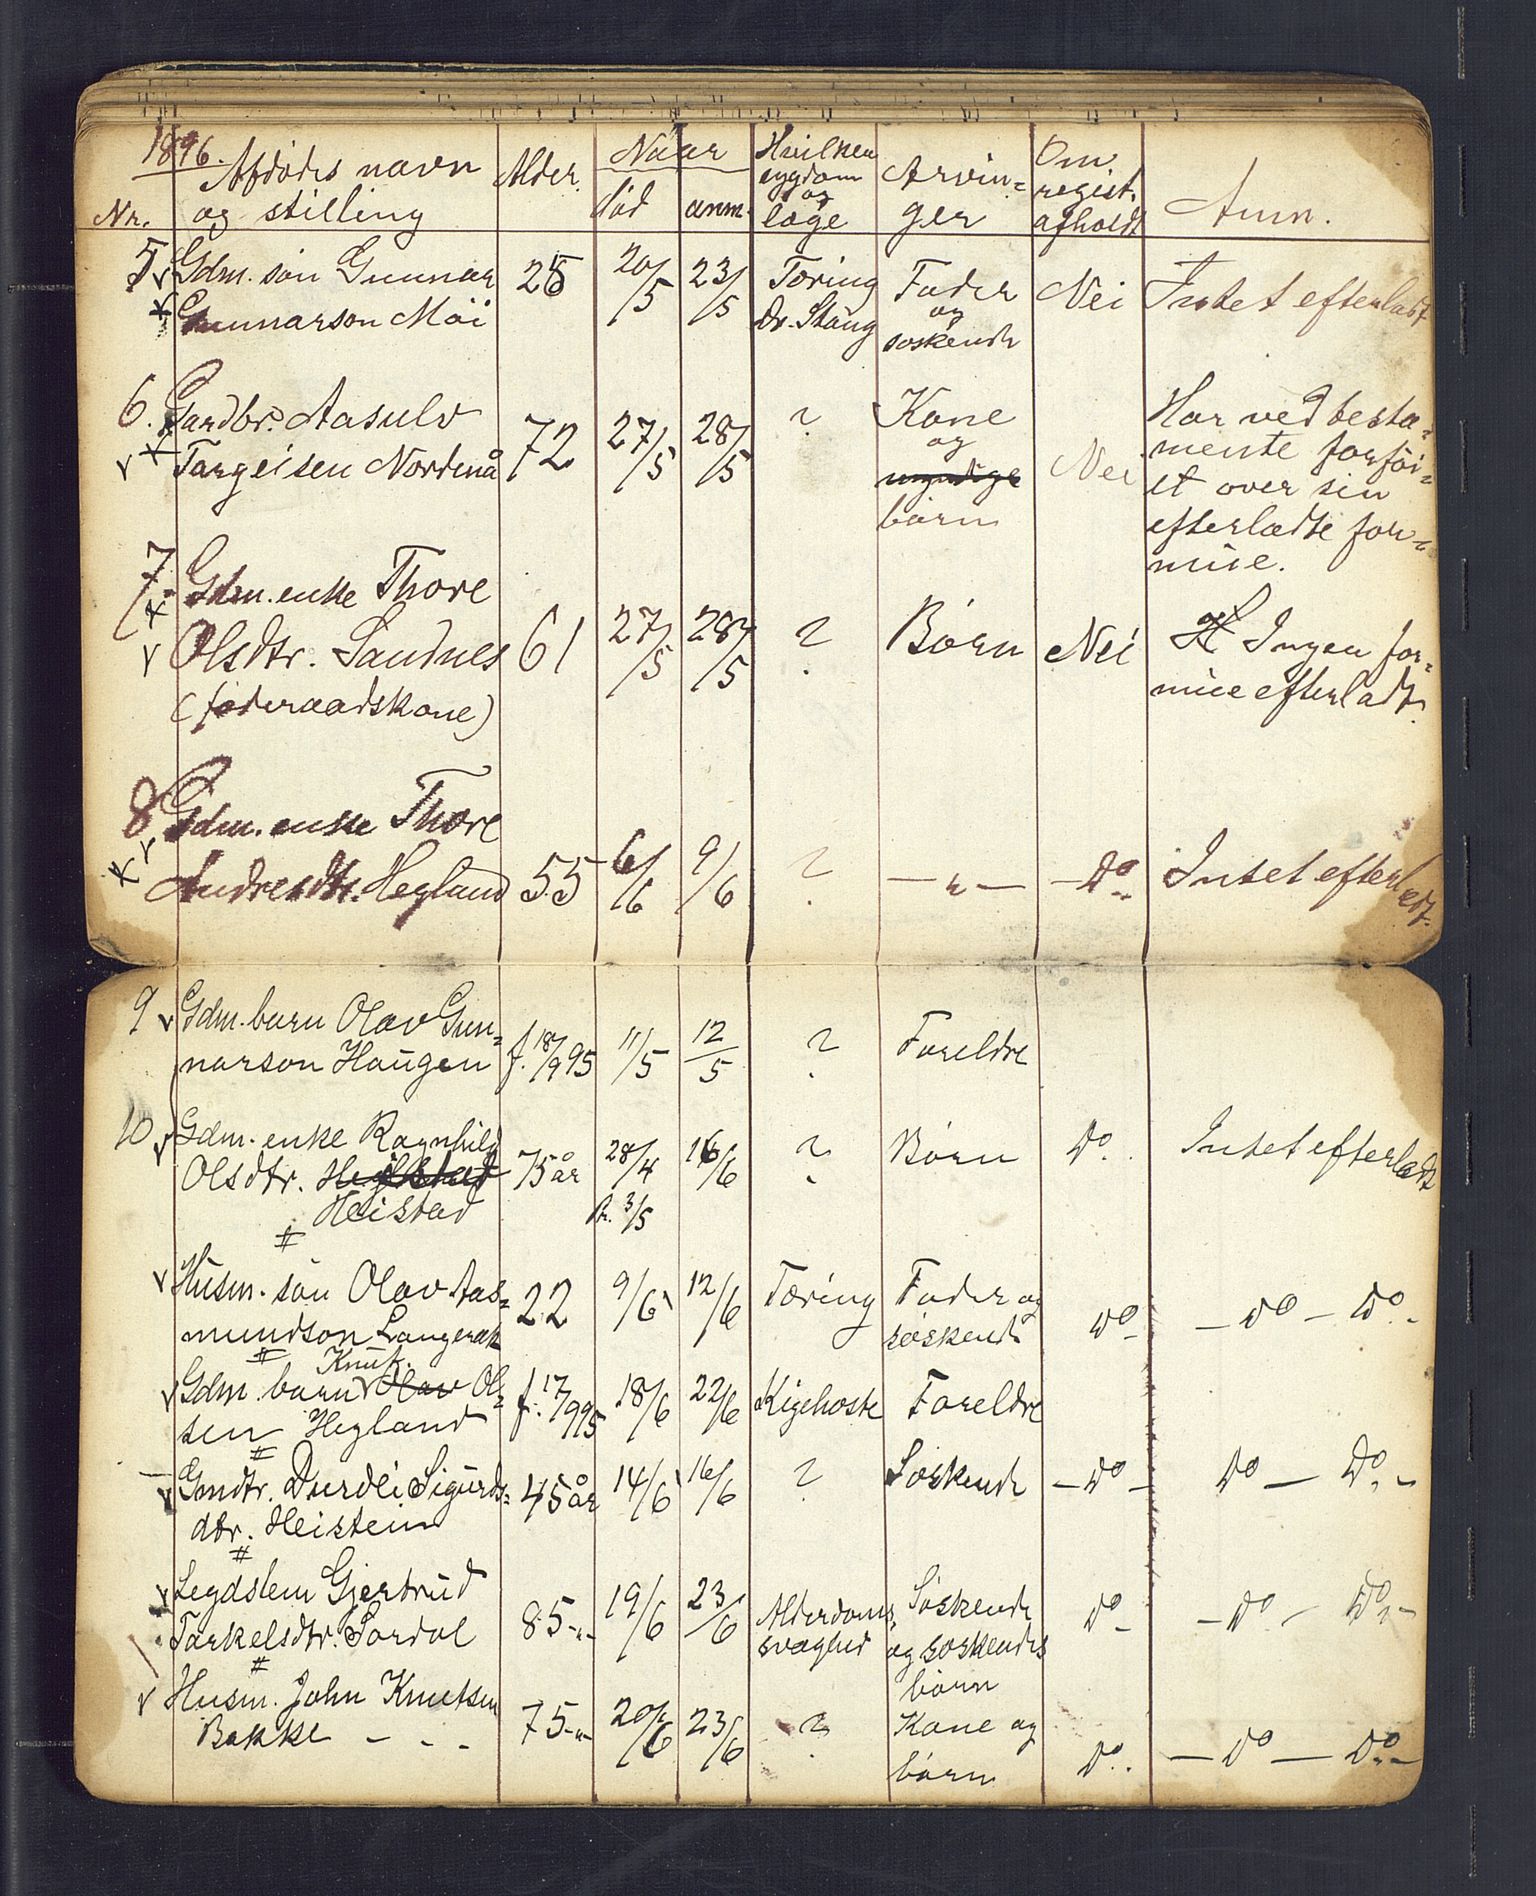 1896.
Nr. Afdødes navn og stilling Alder. Naar død anm. Hvilken sygdom og læge Arvin=ger Om regist. afholdt Anm.
5 Gdm. søn Gunnar 25 20/5 23/5 Tæring Fader Nei Intet efterladt
Gunnarson Möi Dr. Stang og søskende
6. Gardbr. Aasulv 72 27/5 28/5 ? Kone Nei Har ved testa=
Targeisen Nordenå og myndige mente forföi=
børn et over sin
efterladte for=
mue.
7. Gdm. enke Thore
Olsdtr. Sandnes 61 27/5 28/5 ? Børn Nei Ingen for=
(føderaadskone) mue efterladt.
8 Gdm. enke Thore
Andresdtr. Hegland 55 6/6 9/6 ? — „ — — Do. Intet efterladt.
9 Gdm. barn Olav Gun=
narson Haugen f. 18/9 95 11/5 12/5 ? Foreldre
10 Gdm. enke Ragnhild
Olsdtr. Heistad 75 år 28/4 16/6 ? Børn Do. Intet efterladt
Heistad 3/5
#
Husm. søn Olav Aas= 22 9/6 12/6 Tæring Fader og
mundson Langerak søskende Do - — Do — Do. -
# Knut.
Gdm. barn Olav Ol= f. 17/9 95 18/6 22/6 Kigehoste Foreldre
sen Hegland
#
Gmdtr. Durdei Sigurds= 45 år 14/6 16/6 ? Søskende — Do — Do — Do. -
dtr. Heistein
#
Legdslem Gjertrud 85 -„- 19/6 23/6 Alderdoms= Søskende Do - — Do — Do. -
Tarkelsdtr. Sordal svaghed og søskendes
# børn
Husm. John Knutsen 75 -„- 20/6 23/6 ? Kone og
Bakke - - - børn Do. . — Do — Do. -